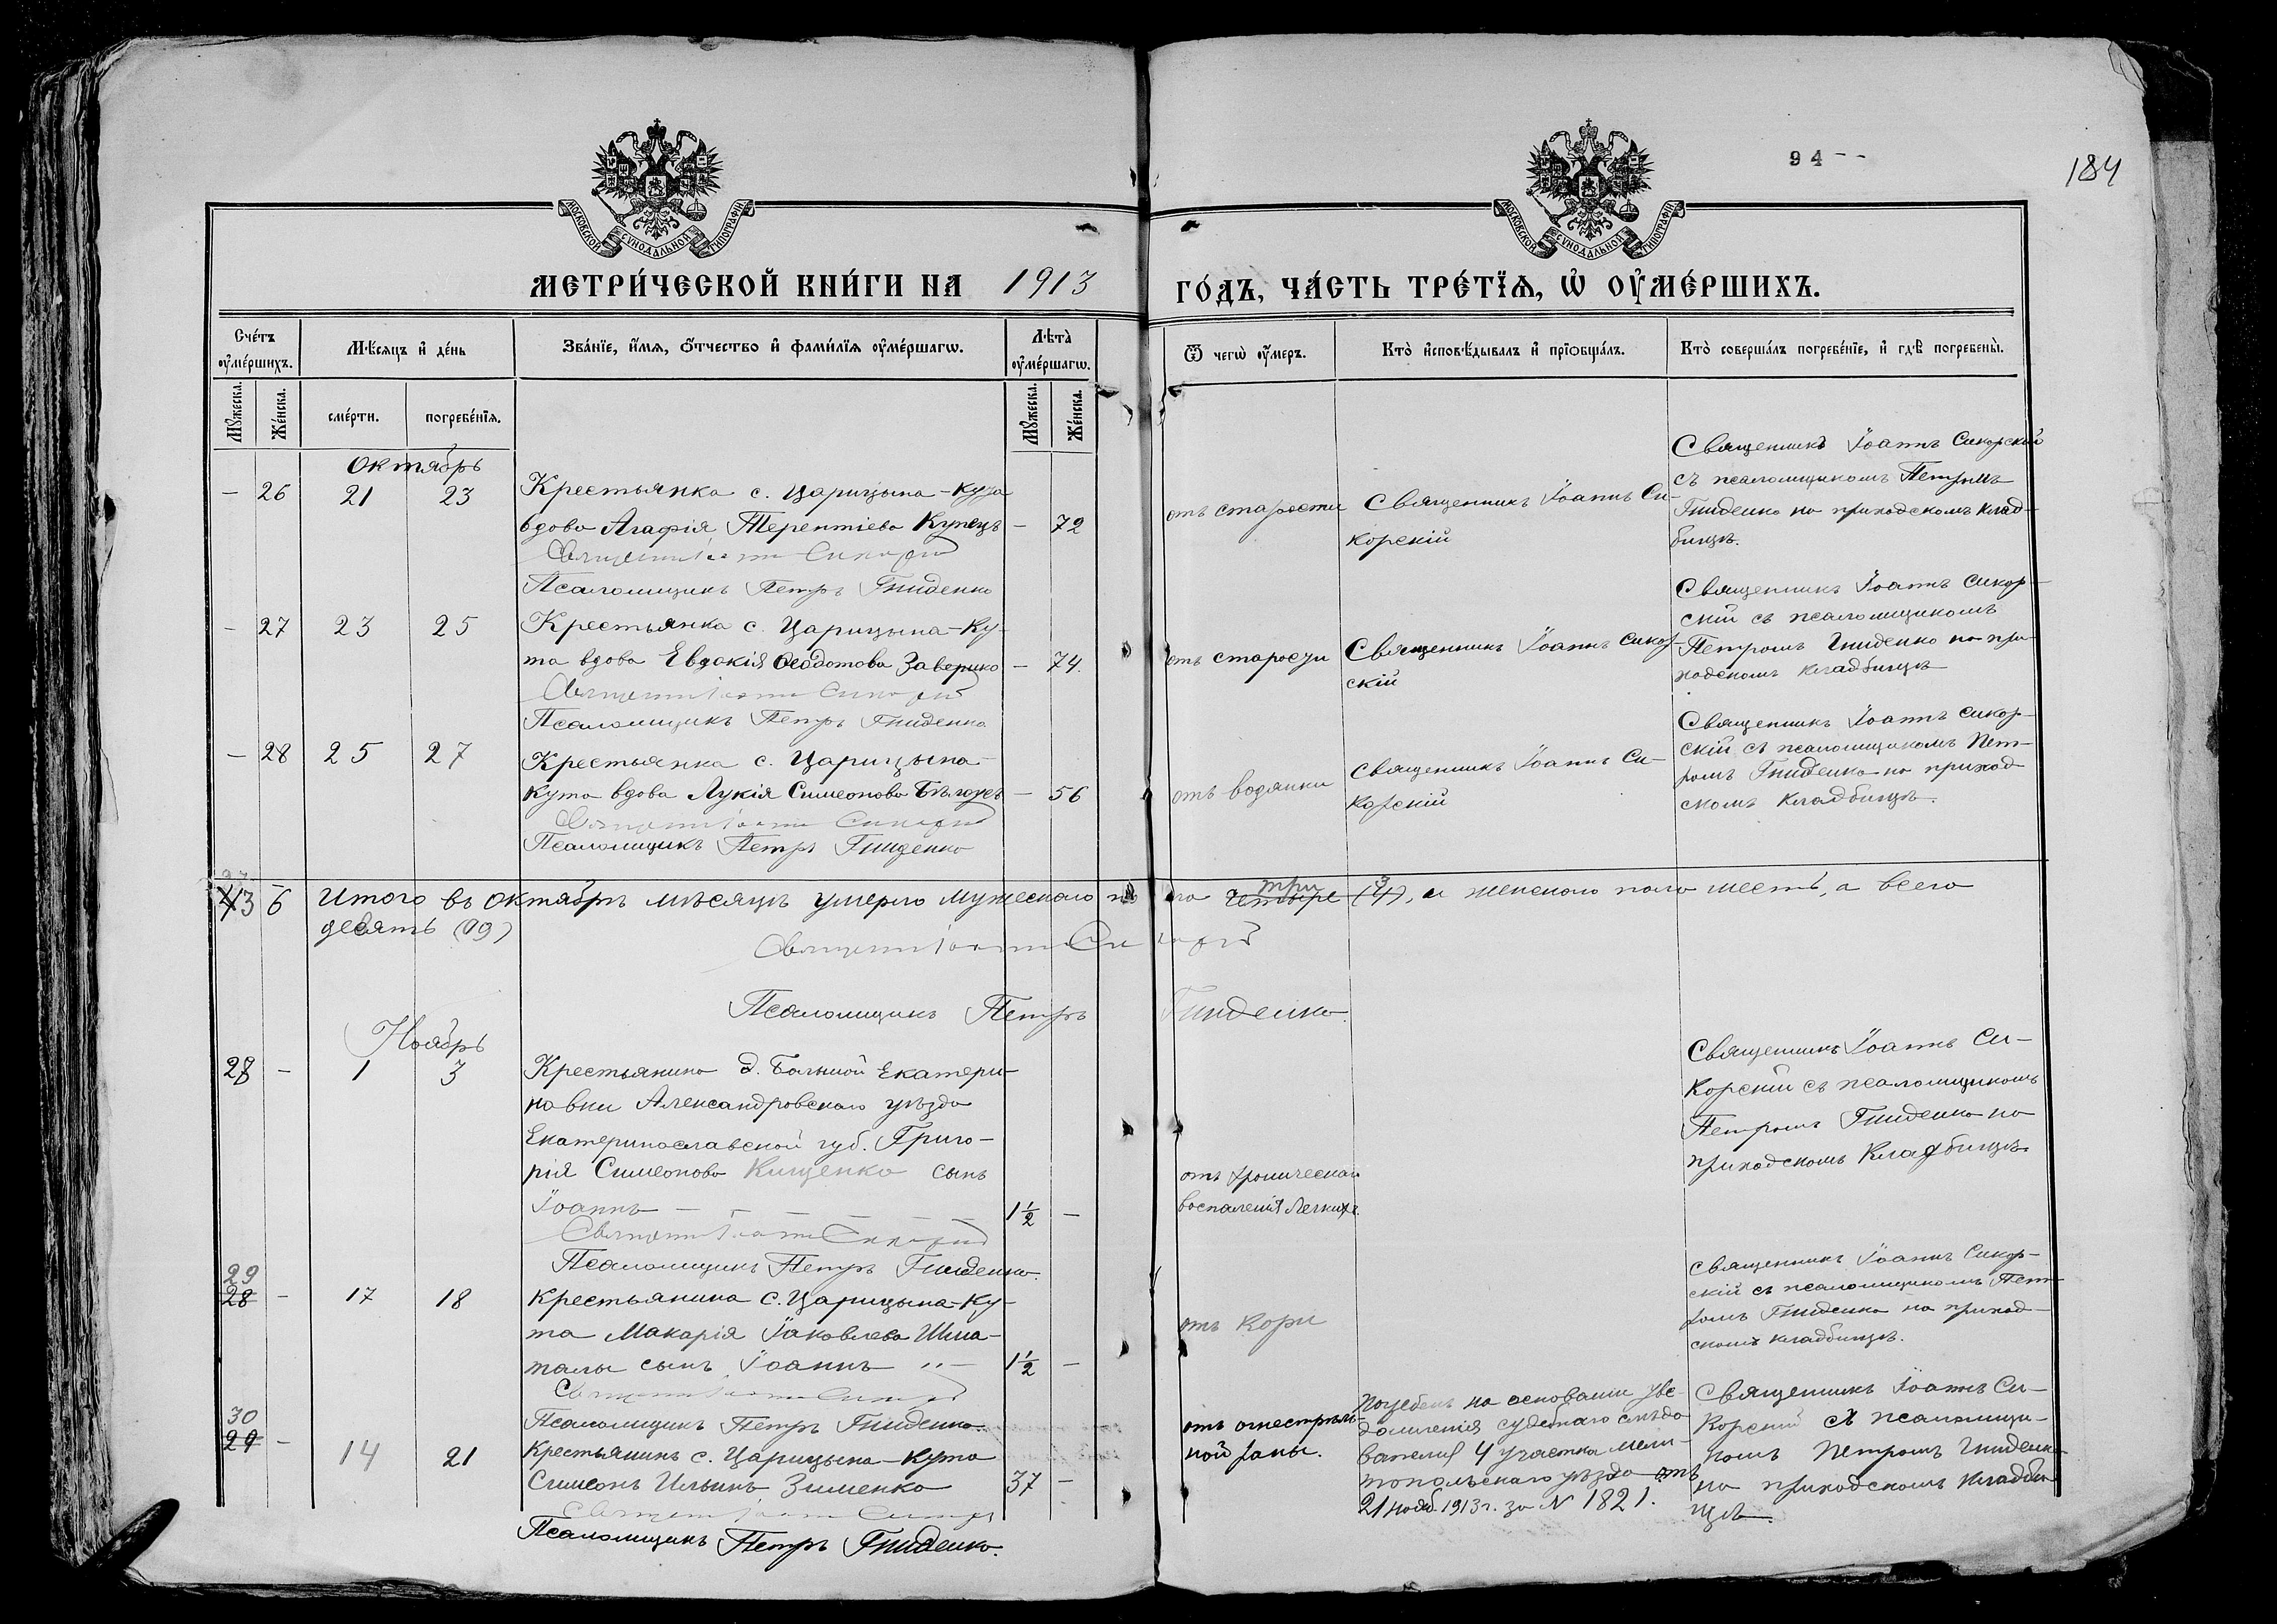 94 - -
184
МОСКОВСКОЙ СУНОДАЛЬНОЙ ТИПОГРАФІИ
МОСКОВСКОЙ СУНОДАЛЬНОЙ ТИПОГРАФІИ
МЕТРИ́ЧЕСКОЙ КНИ́ГИ НА 1913
ГО́ДЪ, ЧА́СТЬ ТРЕ́ТЇѦ, Ѡ҆ ОУ҆МЕ́РШИХЪ.
Сче́тъ оу҆ме́ршихъ.
Мѣ́сяцъ и҆ де́нь
Зва́нїе, и҆́мя, ѻ҆́тчество и҆ фамѝлїя оу҆ме́ршагѡ.
Лѣ́та оу҆ме́ршагѡ.
Ѿ чегѡ̀ оу҆́меръ.
Кто̀ и҆сповѣ́дывалъ и҆ прїѡбща́лъ.
Кто̀ соверша́лъ погребе́нїе, и҆ гдѣ̀ погребены̀.
Мꙋ́жеска.
Же́нска.
сме́рти.
погребе́нїя.
Мꙋ́жеска.
Же́нска.
Октябрь
– 26 21 23
Крестьянка с. Царицына-Кута
вдова Агафія Терентіева Купецъ – 72
Священникъ Іоаннъ Сикорскій
Псаломщикъ Петръ Гниденко
отъ старости
Священникъ Іоаннъ Си-
корскій
Священникъ Іоаннъ Сикорскій
съ псаломщикомъ Петромъ
Гниденко на приходскомъ клад-
бищѣ.
– 27 23 25
Крестьянка с. Царицына-Ку-
та вдова Евдокія Ѳеодотова Заверико – 74.
Священникъ Іоаннъ Сикорскій
Псаломщикъ Петръ Гниденко
отъ старости
Священникъ Іоаннъ Сикор-
скій
Священникъ Іоаннъ Сикор-
скій съ псаломщикомъ
Петромъ Гниденко на при-
ходскомъ кладбищѣ
– 28 25 27
Крестьянка с. Царицына-
Кута вдова Лукія Симеонова – 56
Священникъ Іоаннъ Сикорскій
Псаломщикъ Петръ Гниденко
отъ водянки
Священникъ Іоаннъ Си-
корскій
Священникъ Іоаннъ Сикор-
скій съ псаломщикомъ Пет-
ромъ Гниденко на приход
скомъ кладбищѣ.
3 6 Итого въ октябрѣ мѣсяцѣ умерло мужескаго по ла четыре три (3), а женскаго пола шесть, а всего
девять (9)
Священникъ Іоаннъ Сикорскій
Псаломщикъ Петръ Гниденко.
Ноябрь
28 – 1 3
Крестьянина д. Большой Екатери-
новки Александровскаго уѣзда
Екатеринославской губ. Григо-
рія Симеонова Кищенко сынъ
Іоаннъ – – – – – – 1½ –
Священникъ Іоаннъ Сикорскій
Псаломщикъ Петръ Гниденко.
отъ хроническаго
воспаленія легкихъ.
Священникъ Іоаннъ Си-
корскій съ псаломщикомъ
Петромъ Гниденко на
приходскомъ кладбищѣ
29
28 – 17 18
Крестьянина с. Царицына-Ку-
та Макарія Іаковлева Шма-
талы сынъ Іоаннъ 1½ –
Священникъ Іоаннъ Сикорскій
Псаломщикъ Петръ Гниденко.
отъ кори
Священникъ Іоаннъ Сикор-
скій съ псаломщикомъ Пет-
ромъ Гниденко на приход-
скомъ кладбищѣ.
30
29 – 14 21
Крестьянинъ с. Царицына-Кута
Симеонъ Ильинъ Зименко 37 –
Священникъ Іоаннъ Сикорскій
Псаломщикъ Петръ Гниденко.
отъ огнестрѣль-
ной раны.
Погребенъ на основаніи уве-
домленія судебнаго слѣдо
вателя 4 участка Мели-
топольскаго уѣзда отъ
21 нояб. 1913 г. за № 1821.
Священникъ Іоаннъ Си-
корскій съ псаломщи-
комъ Петромъ Гниден-
ко на приходскомъ кладби
щѣ.